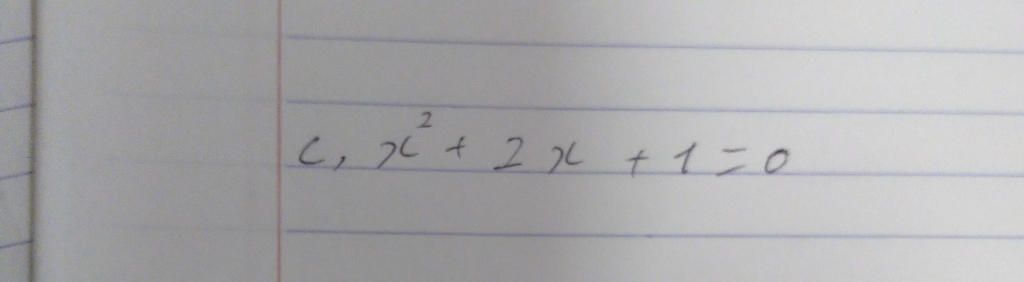 c, x² + 2x + 1 = 0